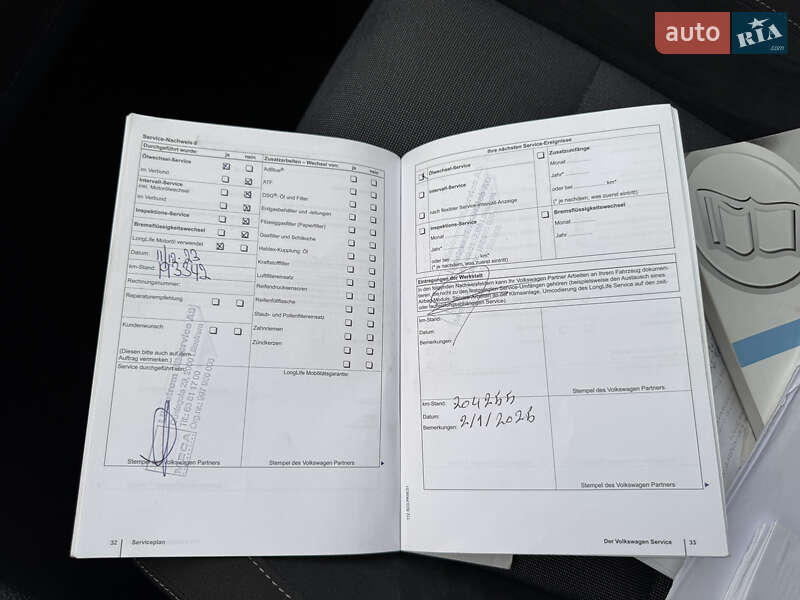 auto RIA.com
Service-Nachweis
Durchgeführt wurde: ja nein
Ölwechsel-Service
im Verbund
Intervall-Service
inkl. Motorölwechsel
im Verbund
Inspektions-Service
Bremsflüssigkeitswechsel
LongLife Motoröl verwendet
Datum:
km-Stand: 193342
Rechnungsnummer:
Reparaturempfehlung
Kundenwunsch
(Diesen bitte auch auf dem
Auftrag vermerken.)
Service durchgeführt von:
Stempel des Volkswagen Partners
32 Serviceplan
Zusatzarbeiten – Wechsel von: ja nein
AdBlue®
ATF
DSG®: Öl und Filter
Erdgasbehälter und -leitungen
Flüssiggasfilter (Papierfilter)
Gasfilter und Schläuche
Haldex-Kupplung: Öl
Kraftstofffilter
Luftfiltereinsatz
Reifendrucksensoren
Reifenfüllflasche
Staub- und Pollenfiltereinsatz
Zahnriemen
Zündkerzen
LongLife Mobilitätsgarantie:
Stempel des Volkswagen Partners
Ihre nächsten Service-Ereignisse
Ölwechsel-Service
Intervall-Service
nach flexibler Service-Intervall-Anzeige
Inspektions-Service
Monat
Jahr*
km*
(* je nachdem, was zuerst eintritt)
Zusatzumfänge:
Monat
Jahr*
oder bei km*
(* je nachdem, was zuerst eintritt)
Bremsflüssigkeitswechsel
Monat
Jahr
Eintragungen der Werkstatt
In den folgenden Nachweisfeldern kann Ihr Volkswagen Partner Arbeiten an Ihrem Fahrzeug dokumen-
tieren, die nicht zu den festgelegten Service-Umfängen gehören (beispielsweise den Austausch eines
km-Stand:
Datum:
Bemerkungen:
Stempel des Volkswagen Partners
km-Stand: 204255
Datum: 2/1/2025
Bemerkungen:
Stempel des Volkswagen Partners
Der Volkswagen Service 33